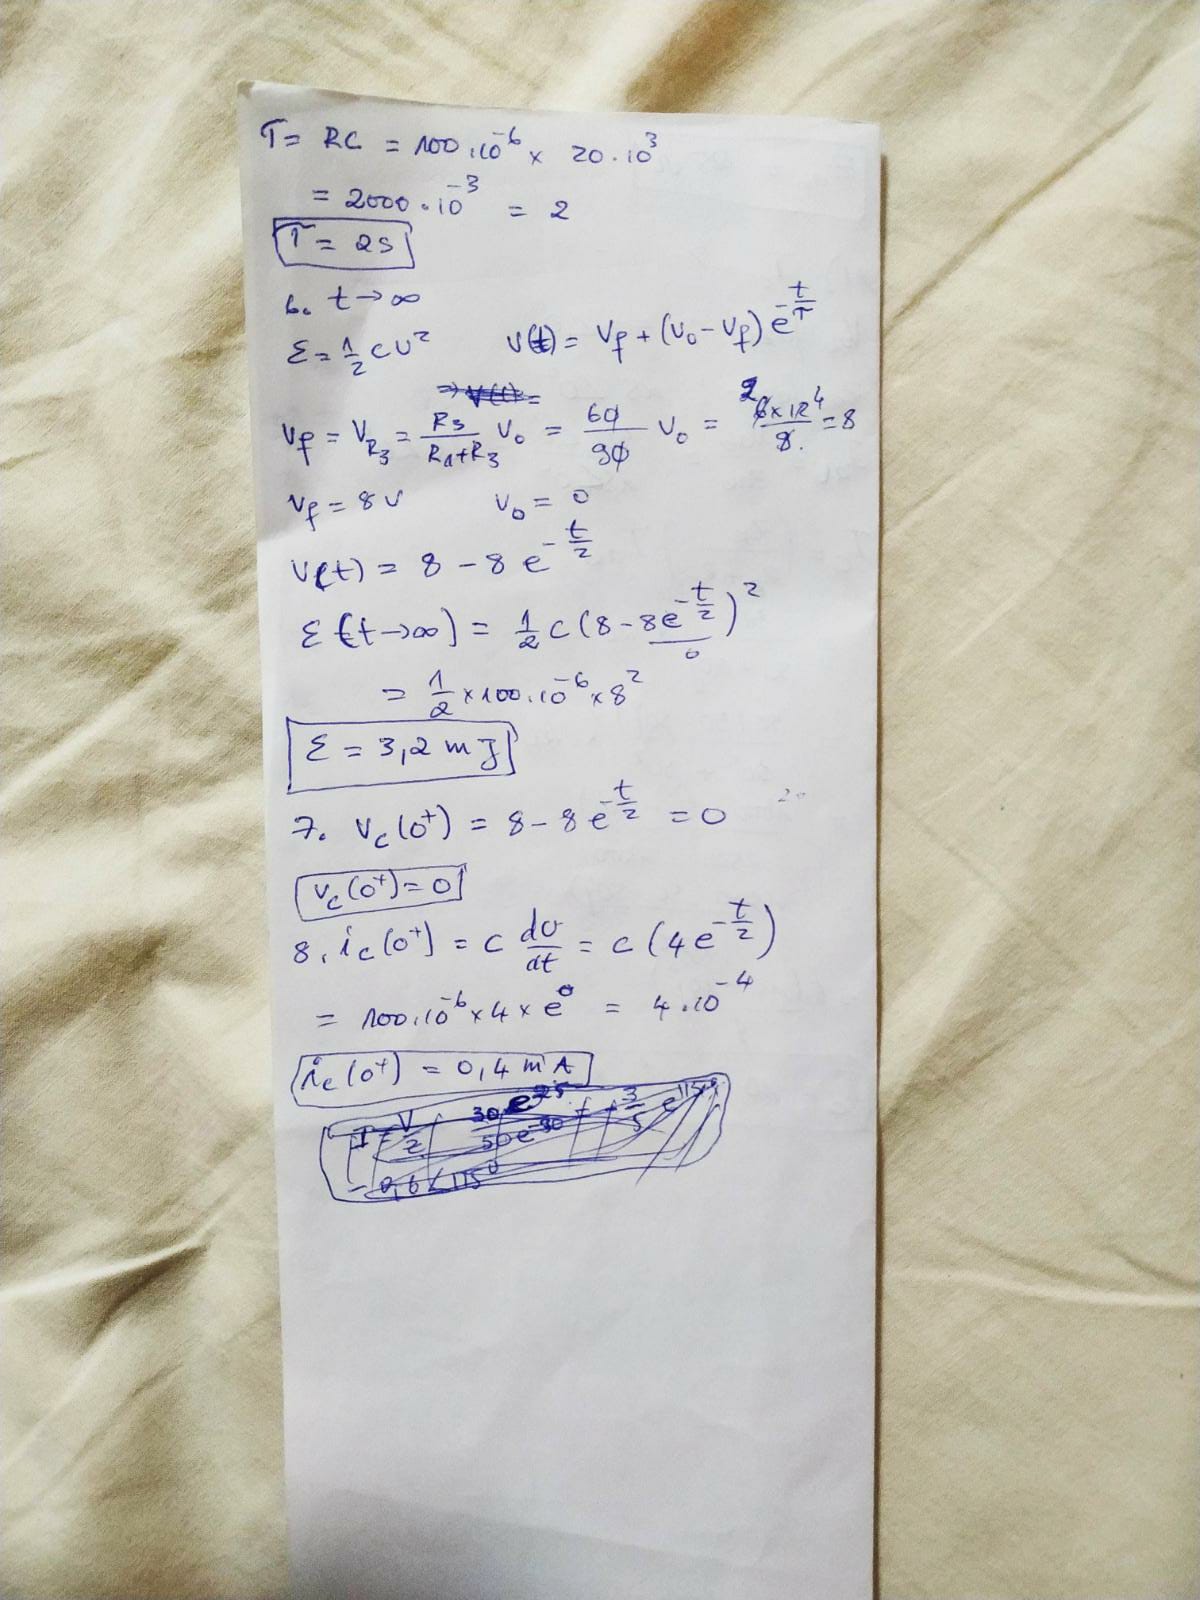 T = RC = 100.10^-6 x 20.10^3
= 2000.10^-3 = 2
T = 2s
6. t → ∞
Ɛ = 1/2 CU²   V(t) = Vf + (V0 - Vf) e^-t/T
Vf = V_R3 = R3/(R1+R3) V0 = 60/90 V0 = 6x12/9 = 8
Vf = 8V   V0 = 0
V(t) = 8 - 8 e^-t/2
Ɛ(t → ∞) = 1/2 C (8 - 8e^-t/2)²
0
= 1/2 x 100.10^-6 x 8²
Ɛ = 3,2 mJ
7. Vc(0+) = 8 - 8 e^-t/2 = 0
Vc(0+) = 0
8. ic(0+) = C dU/dt = C (4 e^-t/2)
= 100.10^-6 x 4 x e^0 = 4.10^-4
ic(0+) = 0,4 mA